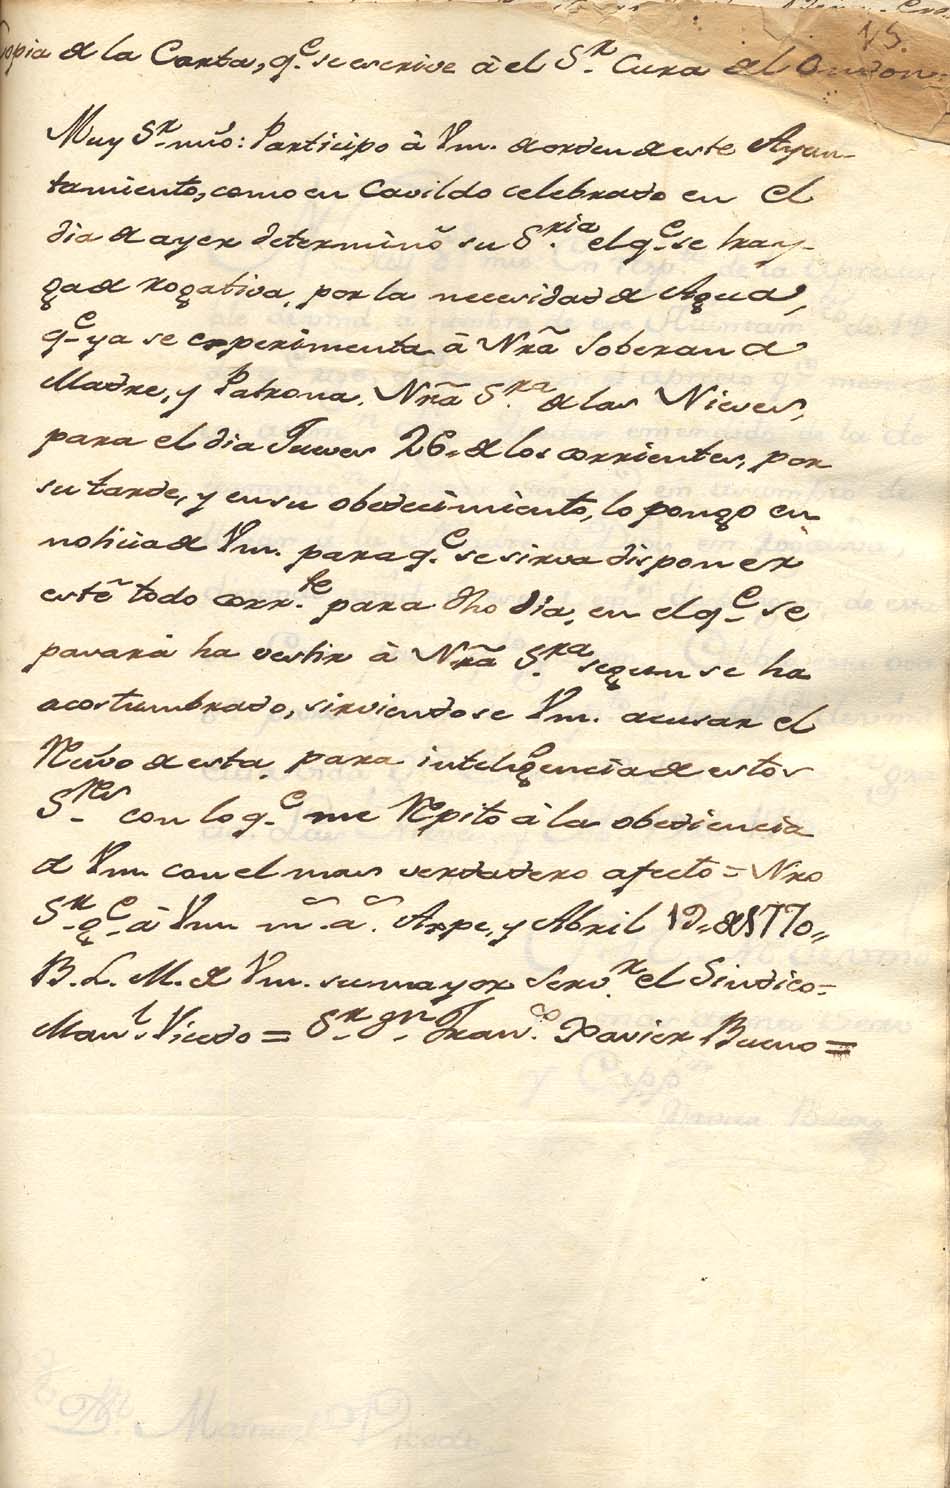 15.
Copia de la Carta, q.e se escrive à el S.r Cura del Ondon=
Muy S.r mio: Participo à Vm. de orden de este Ayun-
tamiento, como en Cavildo celebrado en el
dia de ayer determinò su S.ria el q.e se tray-
ga de rogativa, por la necesidad de Agua,
q.e ya se experimenta à Nrã Soberana
Madre, y Patrona, Nrã S.ra de las Nieves,
para el dia Jueves 26., de los corrientes, por
su tarde, y en su obedecimiento, lo pongo en
noticia de Vm. para q.e se sirva disponer
estè todo corr.te para dho dia, en el q.e se
pasarà ha vestir à Nrã S.ra segun se ha
acostumbrado, sirviendose Vm. acusar el
Recivo de esta, para inteligencia de estos
S.res con lo q.e me Repito à la obediencia
de Vm. con el mas verdadero afecto = Nro
S.r g.e à Vm m.s a.s Aspe, y Abril 19., de 1770,,
B. L. M. de Vm. su mayor Serv.r el Sindico=
Man.l Vicedo = S.r Dn. Fran.co Xavier Bueno =